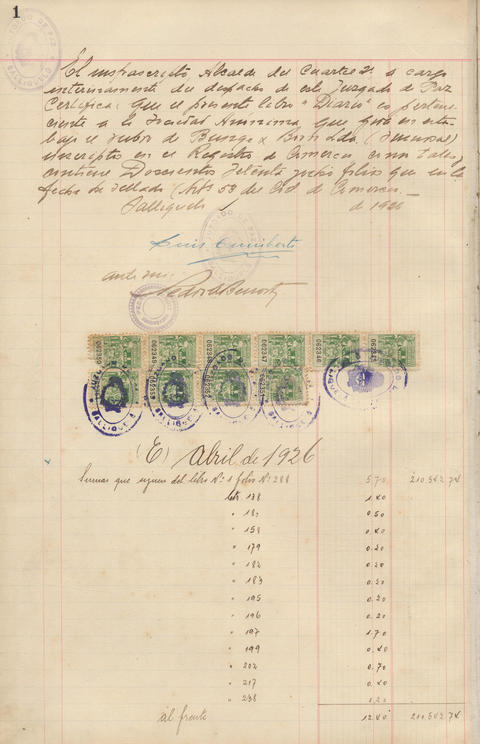 1
El infrascripto, Alcalde del Cuartel 2º a cargo
interinamente del despacho de este Juzgado de Paz
Certifica: que el presente libro "Diario" es pertene-
ciente a la Sociedad Anonima, que gira en esta
bajo el rubro de Bunge & Born Ltda. (Sucursal)
inscriptos en el Registro de Comercio como tales,
contiene Doscientos setenta folios que en la
fecha he sellado (Art. 53 del Cod. de Comercio.
Salliqueló 1 de 1926
Luis
ante mi:
Pedro
062350 062349 062348 062347 062346
(E) Abril de 1926
Sumas que siguen del libro Nº 1 folio Nº 288 5.70 210.542.74
138 1.40
" 0.50
" 158 0.40
" 179 0.20
" 182 0.20
" 183 0.20
" 195 0.20
" 196 0.20
" 197 1.70
" 199 0.40
" 202 0.70
" 217 0.40
" 238 1.20
al frente 12.80 210.542.74